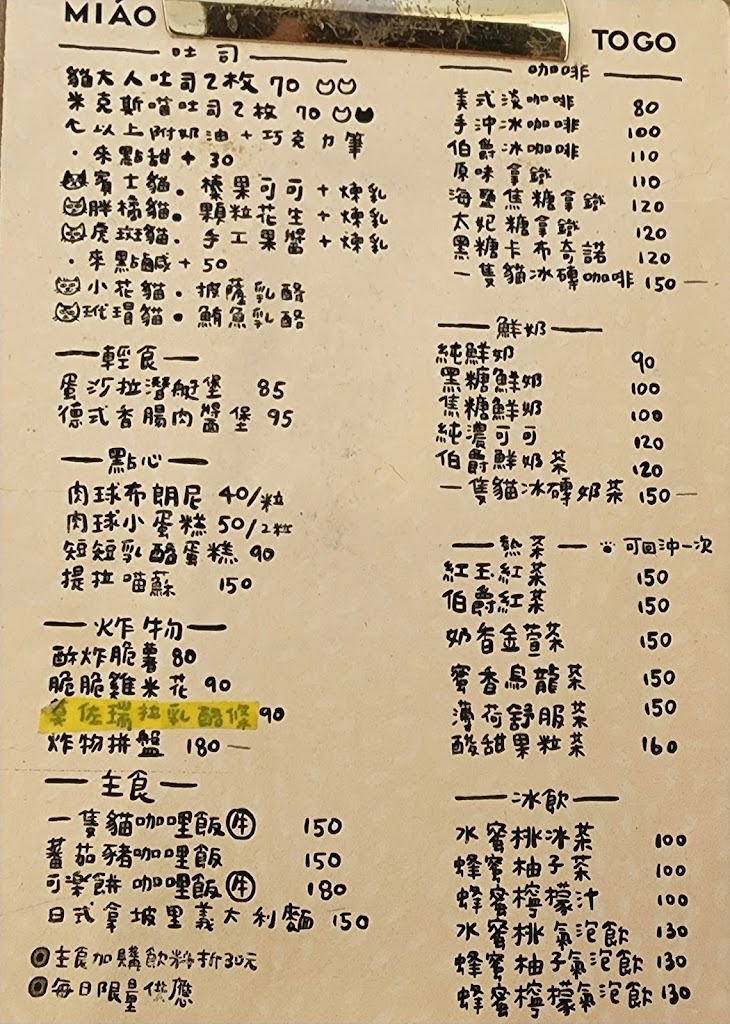 MIÁO
吐司
貓大人吐司2枚 70
米克斯喵吐司2枚 70
以上附奶油+巧克力筆
·來點甜+30
賓士貓。榛果可可+煉乳
胖橘貓。顆粒花生+煉乳
虎斑貓。手工果醬+煉乳
·來點鹹+50
小花貓。披薩乳酪
玳瑁貓。鮪魚乳酪
輕食
蛋沙拉潛艇堡 85
德式香腸肉醬堡 95
點心
肉球布朗尼 40/粒
肉球小蛋糕 50/2粒
短短乳酪蛋糕 90
提拉喵蘇 150
炸物
酥炸脆薯 80
脆脆雞米花 90
莫佐瑞拉乳酪條 90
炸物拼盤 180
主食
一隻貓咖哩飯(牛) 150
蕃茄豬咖哩飯 150
可樂餅咖哩飯(牛) 180
日式拿坡里義大利麵 150
主食加購飲料折30元
每日限量供應
TOGO
咖啡
美式淡咖啡 80
手沖冰咖啡 100
伯爵冰咖啡 110
原味拿鐵 110
海鹽焦糖拿鐵 120
太妃糖拿鐵 120
黑糖卡布奇諾 120
一隻貓冰磚咖啡 150
鮮奶
純鮮奶 90
黑糖鮮奶 100
焦糖鮮奶 100
純濃可可 120
伯爵鮮奶茶 120
一隻貓冰磚奶茶 150
熱茶 可回沖一次
紅玉紅茶 150
伯爵紅茶 150
奶香金萱茶 150
蜜香烏龍茶 150
薄荷舒服茶 150
酸甜果粒茶 160
冰飲
水蜜桃冰茶 100
蜂蜜柚子茶 100
蜂蜜檸檬汁 100
水蜜桃氣泡飲 130
蜂蜜柚子氣泡飲 130
蜂蜜檸檬氣泡飲 130